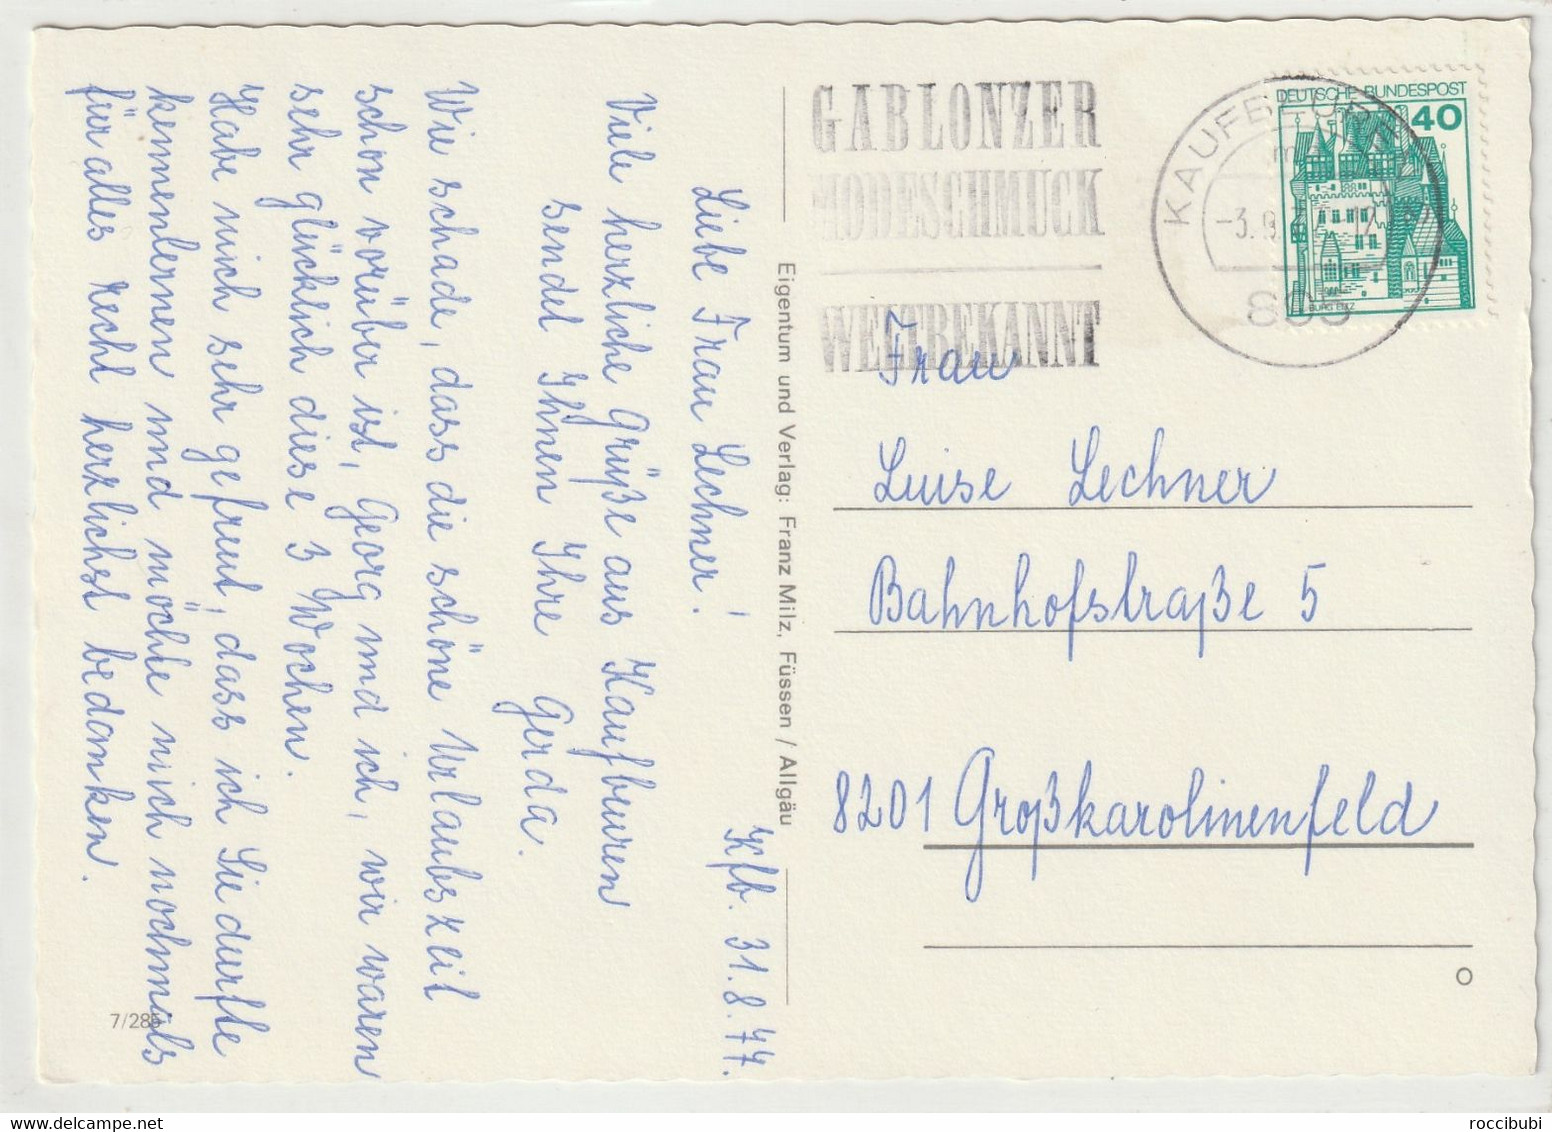 Kfb. 31.8.77.
Liebe Frau Lechner!
Viele herzliche Grüße aus Kaufbeuren
sendet Ihnen Ihre Gerda.
Wie schade, dass die schöne Urlaubszeit
schon vorüber ist, Georg und ich, wir waren
sehr glücklich diese 3 Wochen.
Habe mich sehr gefreut, dass ich Sie durfte
kennenlernen und möchte mich nochmals
für alles recht herzlichst bedanken.
7/285
Eigentum und Verlag: Franz Milz, Füssen / Allgäu
GABLONZER
MODESCHMUCK
WELTBEKANNT
KAUFBEUREN
DEUTSCHE BUNDESPOST
40
BURG ELTZ
Frau
Luise Lechner
Bahnhofstraße 5
8201 Großkarolinenfeld
roccibubi